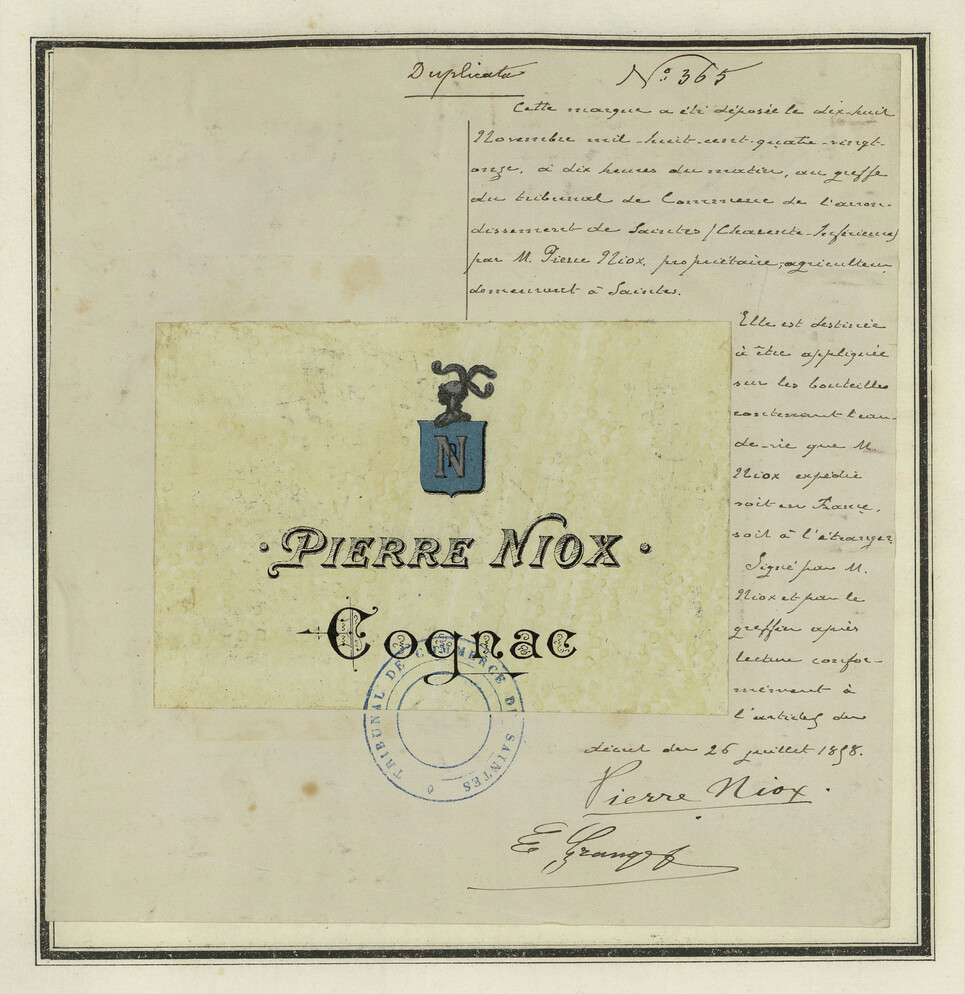 Duplicata
N° 365
Cette marque a été déposée le dix-huit
Novembre mil-huit-cent-quatre-vingt-
onze, à dix heures du matin, au greffe
du tribunal de Commerce de l'arron-
dissement de Saintes (Charente-Inférieure)
par M. Pierre Niox, propriétaire-agriculteur
demeurant à Saintes.
Elle est destinée
à être appliquée
sur les bouteilles
contenant l'eau-
de-vie que M.
Niox expédie
soit en France,
soit à l'étranger
Signé par M.
Niox et par le
greffier après
lecture confor-
mément à
l'article 5 du
décret du 26 juillet 1858.
Pierre Niox.
E Grange
N
PIERRE NIOX
Cognac
TRIBUNAL DE COMMERCE DE SAINTES